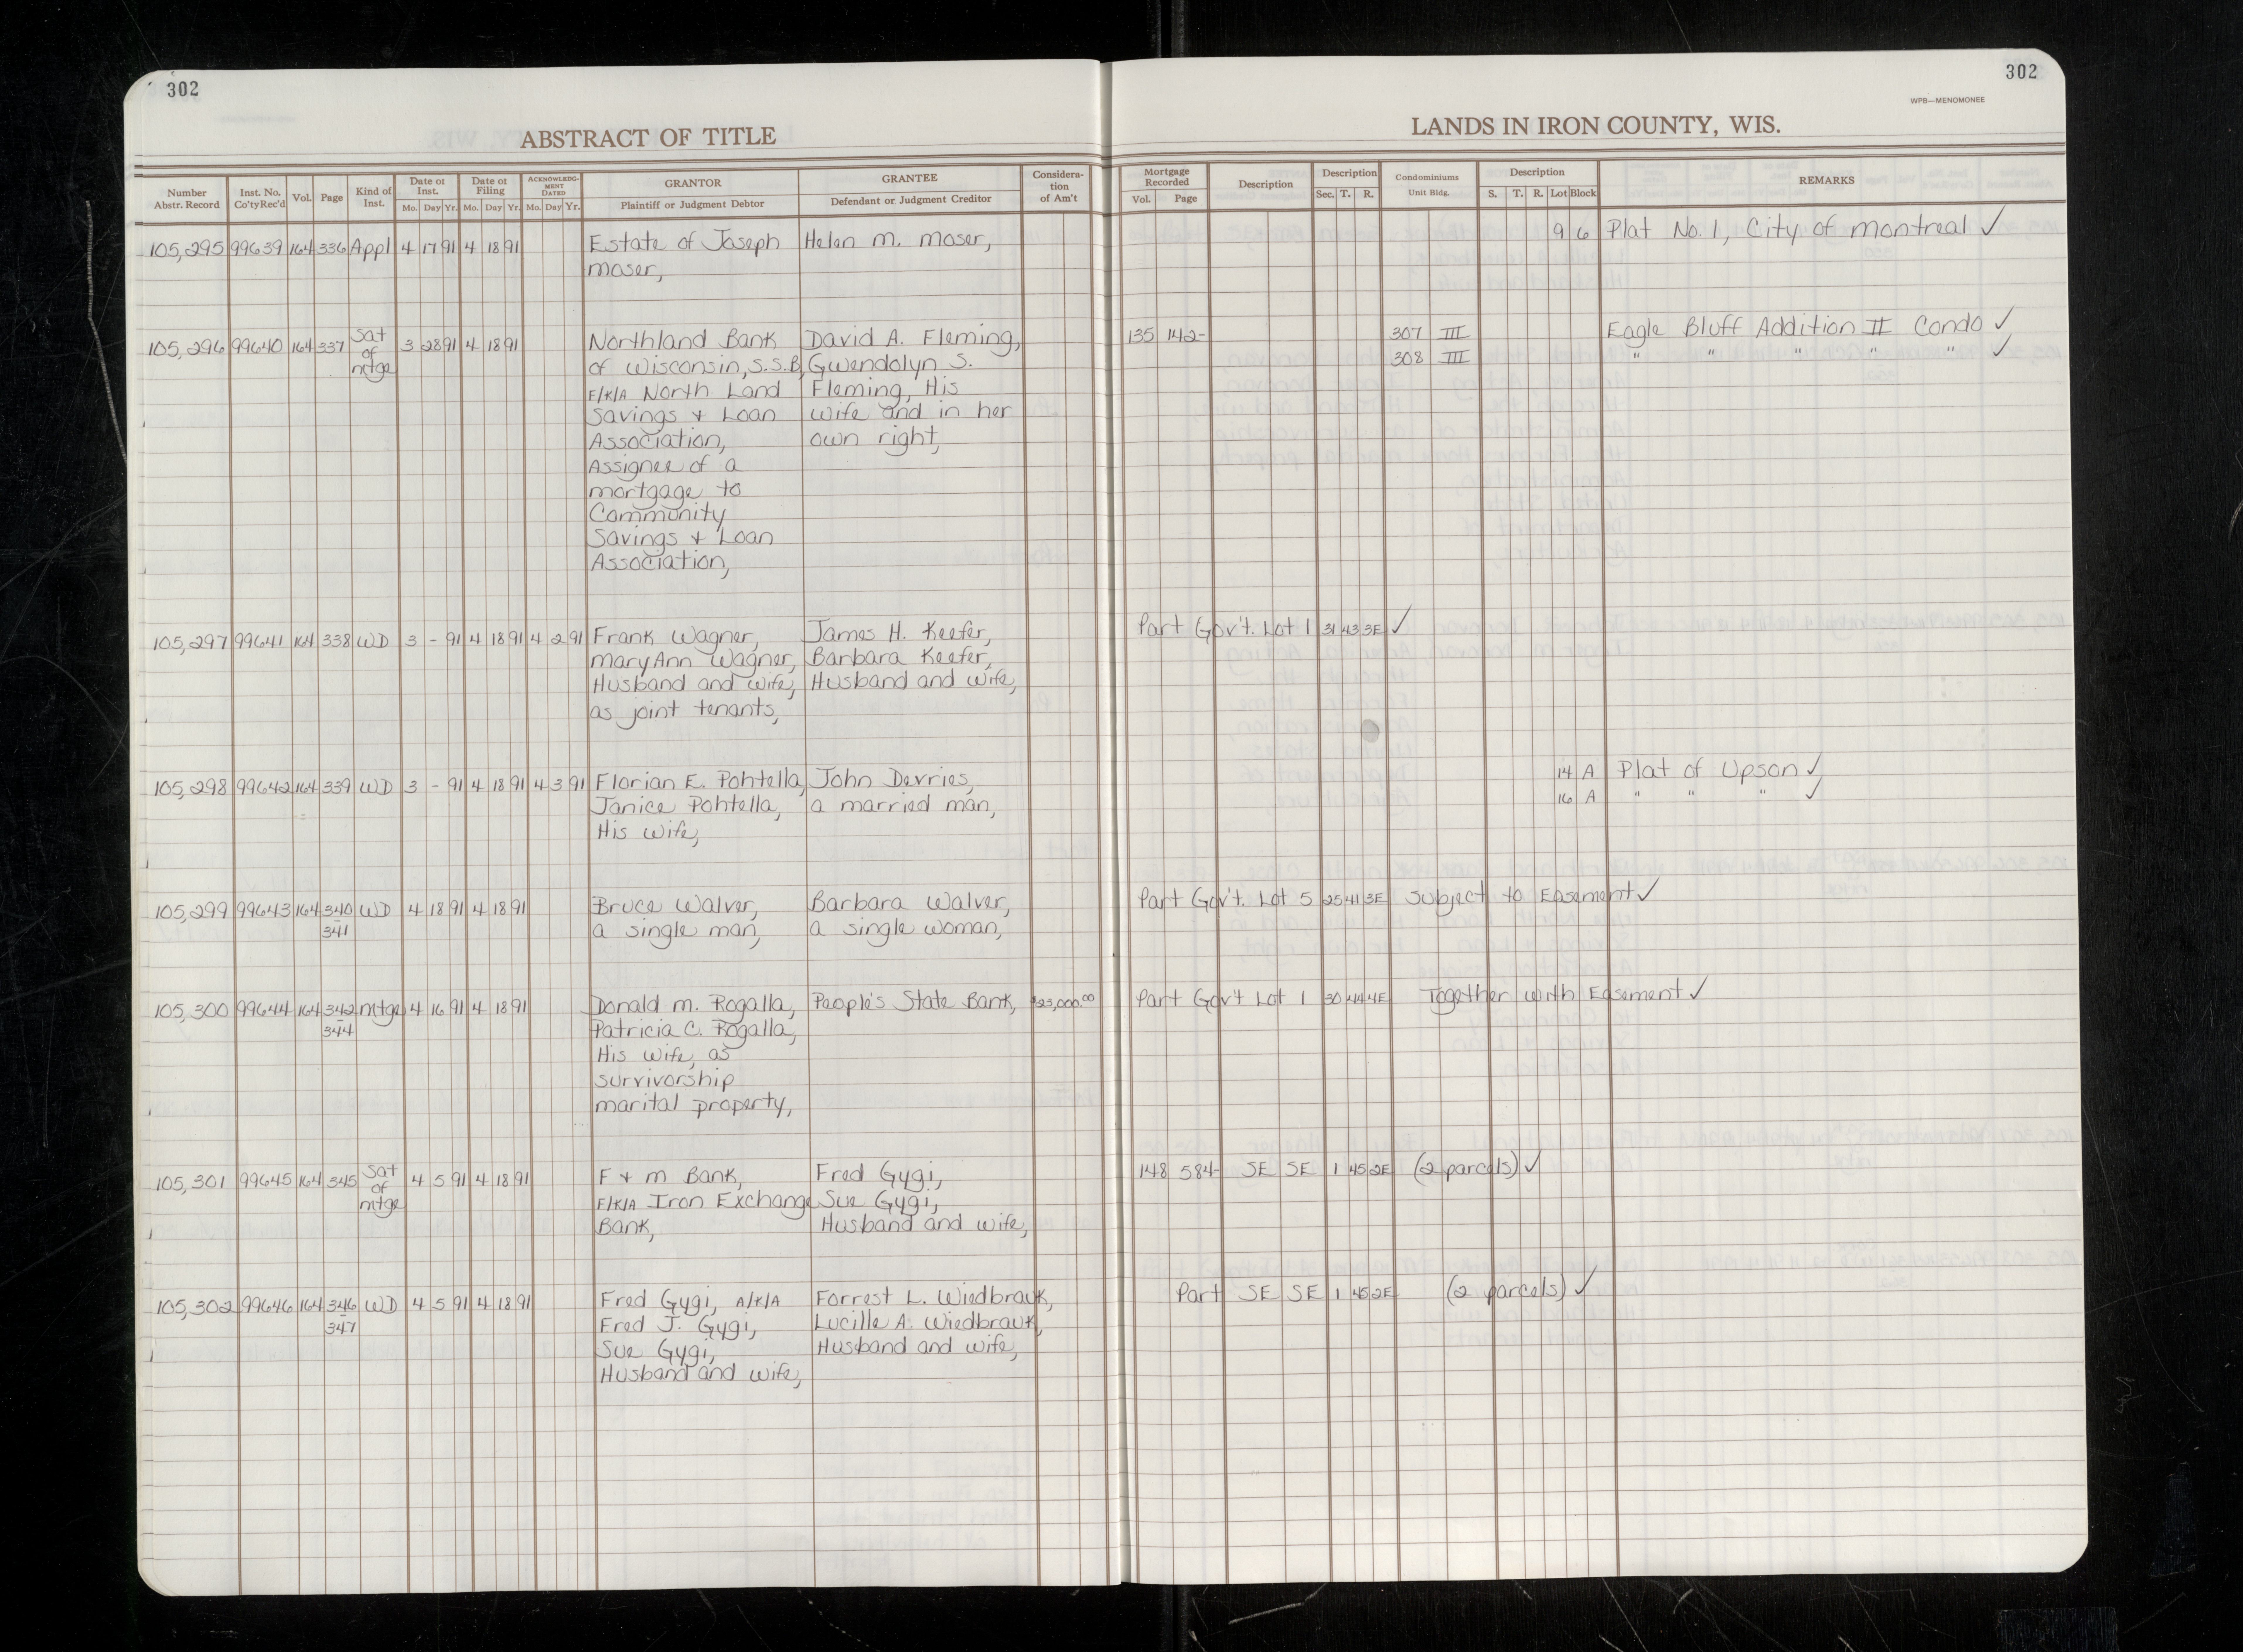 302
302
WPB—MENOMONEE
ABSTRACT OF TITLE
LANDS IN IRON COUNTY, WIS.
Number Abstr. Record | Inst. No. Co'ty Rec'd | Vol. | Page | Kind of Inst. | Date of Inst. Mo. Day Yr. | Date of Filing Mo. Day Yr. | ACKNOWLEDGMENT DATED Mo. Day Yr. | GRANTOR Plaintiff or Judgment Debtor | GRANTEE Defendant or Judgment Creditor | Consideration of Am't | Mortgage Recorded Vol. Page | Description | Description Sec. T. R. | Condominiums Unit Bldg. | Description S. T. R. Lot Block | REMARKS
105,295 99639 164 336 Appl 4 17 91 4 18 91 Estate of Joseph Helen M. Moser, 9 6 Plat No. 1, City of Montreal ✓
Moser,
105,296 99640 164 337 Sat of mtge 3 28 91 4 18 91 Northland Bank David A. Fleming, 135 142- 307 III Eagle Bluff Addition II Condo ✓
of Wisconsin, S.S.B, Gwendolyn S. 308 III " " " " " ✓
F/K/A North Land Fleming, His
Savings + Loan wife and in her
Association, own right,
Assignee of a
mortgage to
Community
Savings + Loan
Association,
105,297 99641 164 338 WD 3 - 91 4 18 91 4 2 91 Frank Wagner, James H. Keefer, Part Gov't. Lot 1 31 43 3E ✓
Mary Ann Wagner, Barbara Keefer,
Husband and wife, Husband and wife,
as joint tenants,
105,298 99642 164 339 WD 3 - 91 4 18 91 4 3 91 Florian E. Pohtella, John Devries, 14 A Plat of Upson ✓
Janice Pohtella, a married man, 16 A " " " ✓
His wife,
105,299 99643 164 340-341 WD 4 18 91 4 18 91 Bruce Walver, Barbara Walver, Part Gov't. Lot 5 25 41 3E Subject to Easement ✓
a single man, a single woman,
105,300 99644 164 342-344 mtge 4 16 91 4 18 91 Donald M. Rogalla, People's State Bank, $23,000.00 Part Gov't Lot 1 30 44 4E Together with Easement ✓
Patricia C. Rogalla,
His wife, as
survivorship
marital property,
105,301 99645 164 345 Sat of mtge 4 5 91 4 18 91 F + M Bank, Fred Gygi, 148 584- SE SE 1 45 2E (2 parcels) ✓
F/K/A Iron Exchange Sue Gygi,
Bank, Husband and wife,
105,302 99646 164 346-347 WD 4 5 91 4 18 91 Fred Gygi, A/K/A Forrest L. Wiedbrauk, Part SE SE 1 45 2E (2 parcels) ✓
Fred J. Gygi, Lucille A. Wiedbrauk,
Sue Gygi, Husband and wife,
Husband and wife,